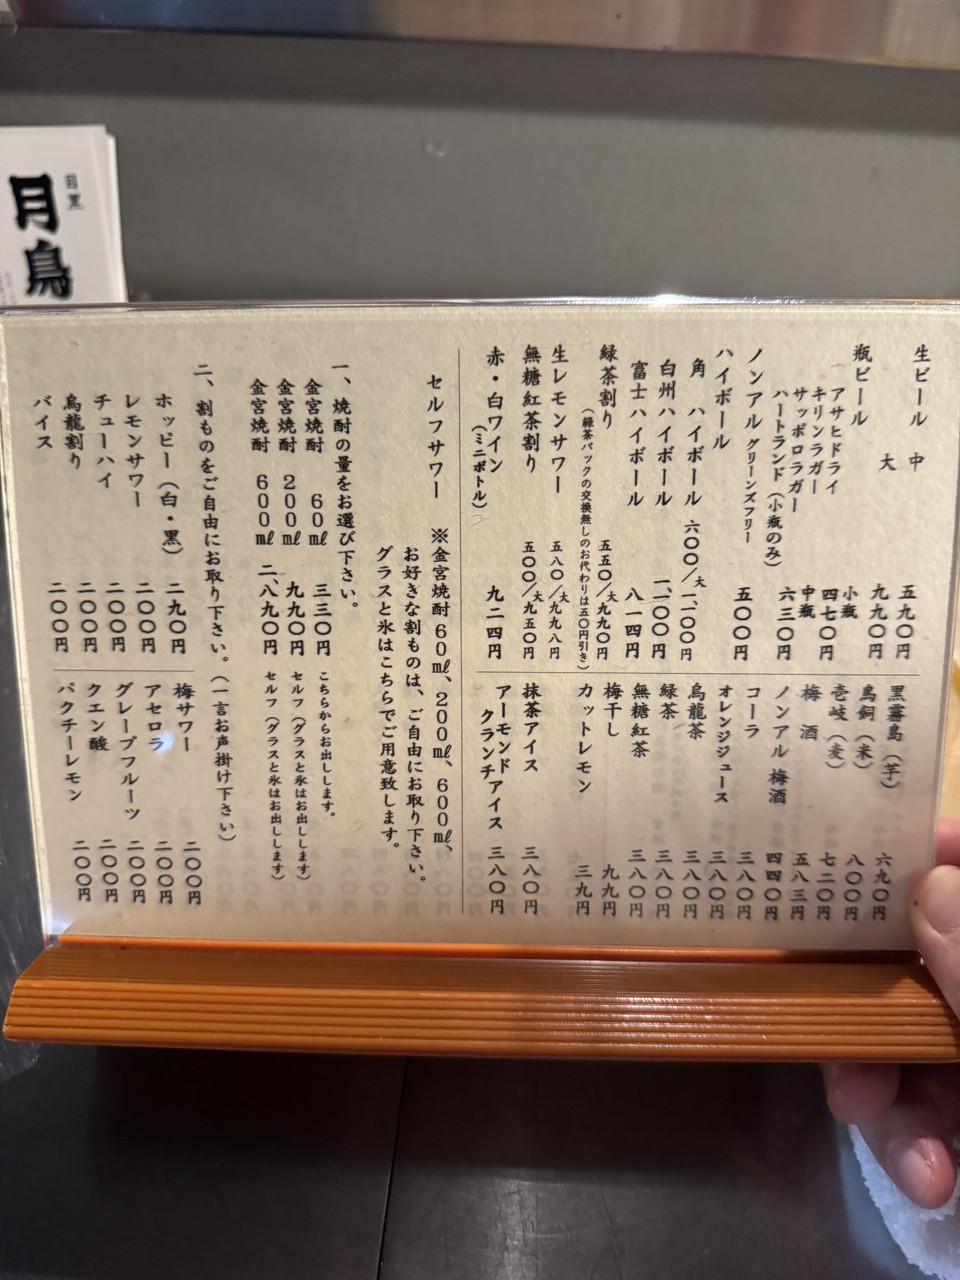 目黒
月鳥
生ビール 中 五九〇円
大 九九〇円
瓶ビール 小瓶 四七〇円
アサヒドライ
キリンラガー
サッポロラガー 中瓶 六三〇円
ハートランド（小瓶のみ）
ノンアル グリーンズフリー 五〇〇円
ハイボール
角 ハイボール 六〇〇／大一、一〇〇円
白州ハイボール 一、一〇〇円
富士ハイボール 八一四円
緑茶割り 五五〇／大九九〇円
（緑茶パックの交換無しのお代わりは五〇円引き）
生レモンサワー 五八〇／大九九八円
無糖紅茶割り 五〇〇／大九五〇円
赤・白ワイン 九二四円
（ミニボトル）
黒霧島（芋） 六九〇円
鳥飼（米） 八〇〇円
壱岐（麦） 七二〇円
梅 酒 五八三円
ノンアル 梅酒 四四〇円
コーラ 三八〇円
オレンジジュース 三八〇円
烏龍茶 三八〇円
緑茶 三八〇円
無糖紅茶 三八〇円
梅干し 九九円
カットレモン 三九円
抹茶アイス 三八〇円
アーモンド
クランチアイス 三八〇円
セルフサワー ※金宮焼酎 60㎖、200㎖、600㎖、
お好きな割ものは、ご自由にお取り下さい。
グラスと氷はこちらでご用意致します。
一、焼酎の量をお選び下さい。
金宮焼酎 60㎖ 三三〇円 こちらからお出しします。
金宮焼酎 200㎖ 九九〇円 セルフ（グラスと氷はお出しします）
金宮焼酎 600㎖ 二、八九〇円 セルフ（グラスと氷はお出しします）
二、割ものをご自由にお取り下さい。（一言お声掛け下さい）
ホッピー（白・黒） 二九〇円
レモンサワー 二〇〇円
チューハイ 二〇〇円
烏龍割り 二〇〇円
バイス 二〇〇円
梅サワー 二〇〇円
アセロラ 二〇〇円
グレープフルーツ 二〇〇円
クエン酸 二〇〇円
パクチーレモン 二〇〇円